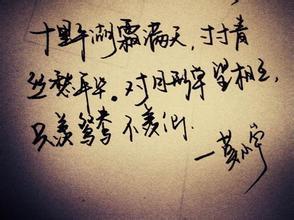 十里平湖霜满天,寸寸青
丝愁年华。对月形单望相互,
只羡鸳鸯不羡仙.